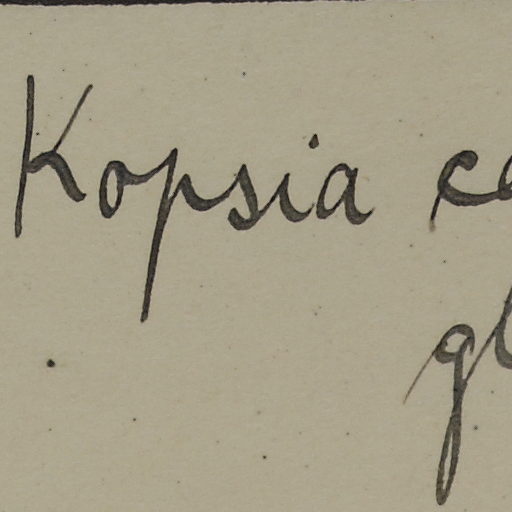 Kopsia
gl